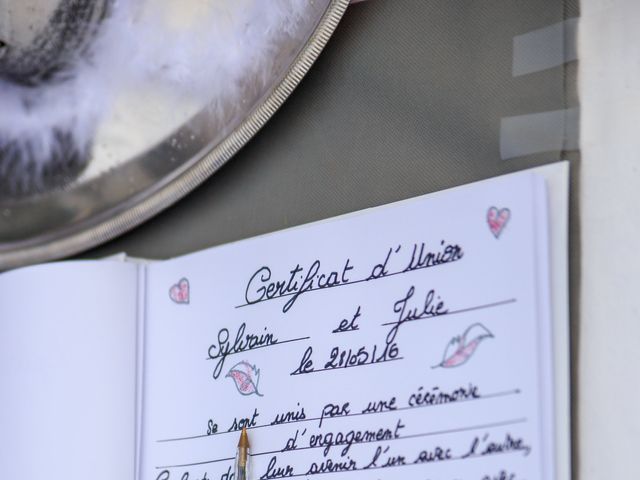 Certificat d'Union
Sylvain et Julie
le 28/05/16
se sont unis par une cérémonie
d'engagement
leur avenir l'un avec l'autre,